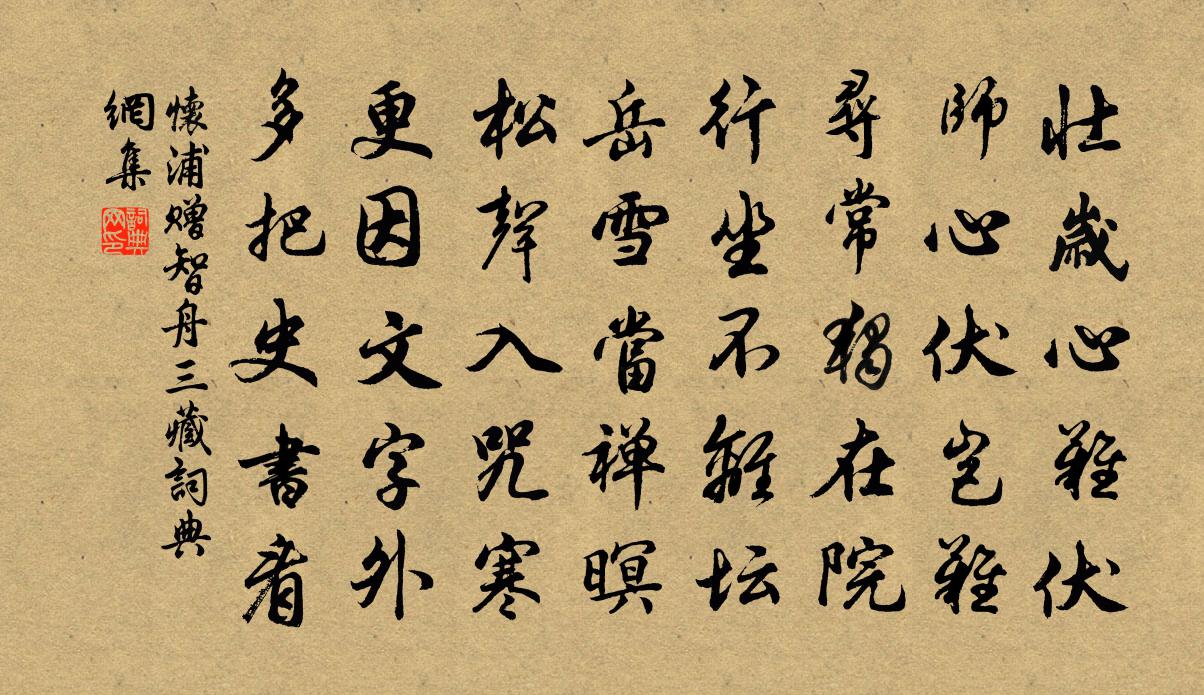 壯歲心難伏
師心伏豈難
尋常獨在院
行坐不離坛
岳雪當禅暝
松聲入咒寒
更因文字外
多把史書看
懷浦赠智舟三藏詞典
網集
詞典
网印